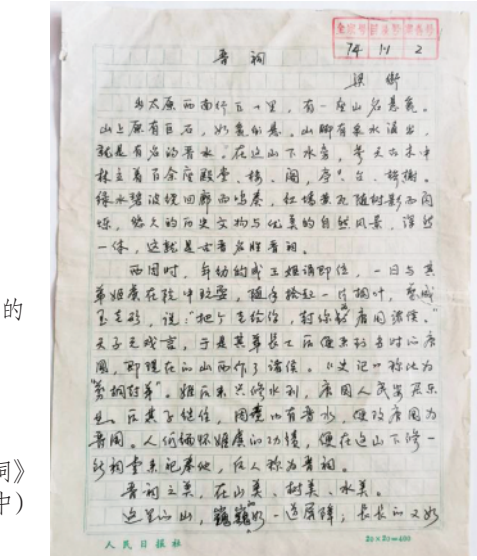 全宗号 目录号 案卷号
74 1·1 2
晋祠
梁衡
出太原西南行五十里,有一座山名悬瓮。
山上原有巨石,如瓮倒悬。山脚有泉水涌出,
就是有名的晋水。在这山下水旁,参天古木中
林立着百余座殿堂、楼、阁,亭、台、桥榭。
绿水碧波绕回廊而鸣奏,红墙黄瓦随树影而闪
烁,悠久的历史文物与优美的自然风景,浑然
一体,这就是古晋名胜晋祠。
西周时,年幼的成王姬诵即位,一日与其
弟姬虞在院中玩耍,随手拾起一片桐叶,剪成
玉圭形,说:"把个圭给你,封你为唐国诸侯。"
天子无戏言,于是其弟长大后便来到当时的唐
国,即现在的山西作了诸侯。《史记》称此为
"剪桐封弟"。姬后来兴修水利,唐国人民安居乐
业。后其子继位,因境内有晋水,便改唐国为
晋国。人们缅怀姬虞的功绩,便在这山下修一
祠堂来祀奉他,后人称为晋祠。
晋祠之美,在山美、树美、水美。
这里的山,巍巍如一道屏障;长长的又如
人民日报社
20×20=400
的
祠》
中)